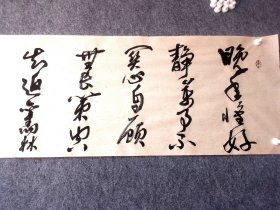 晚年惟好
靜萬事不
關心自顧
無長策空
知返舊林